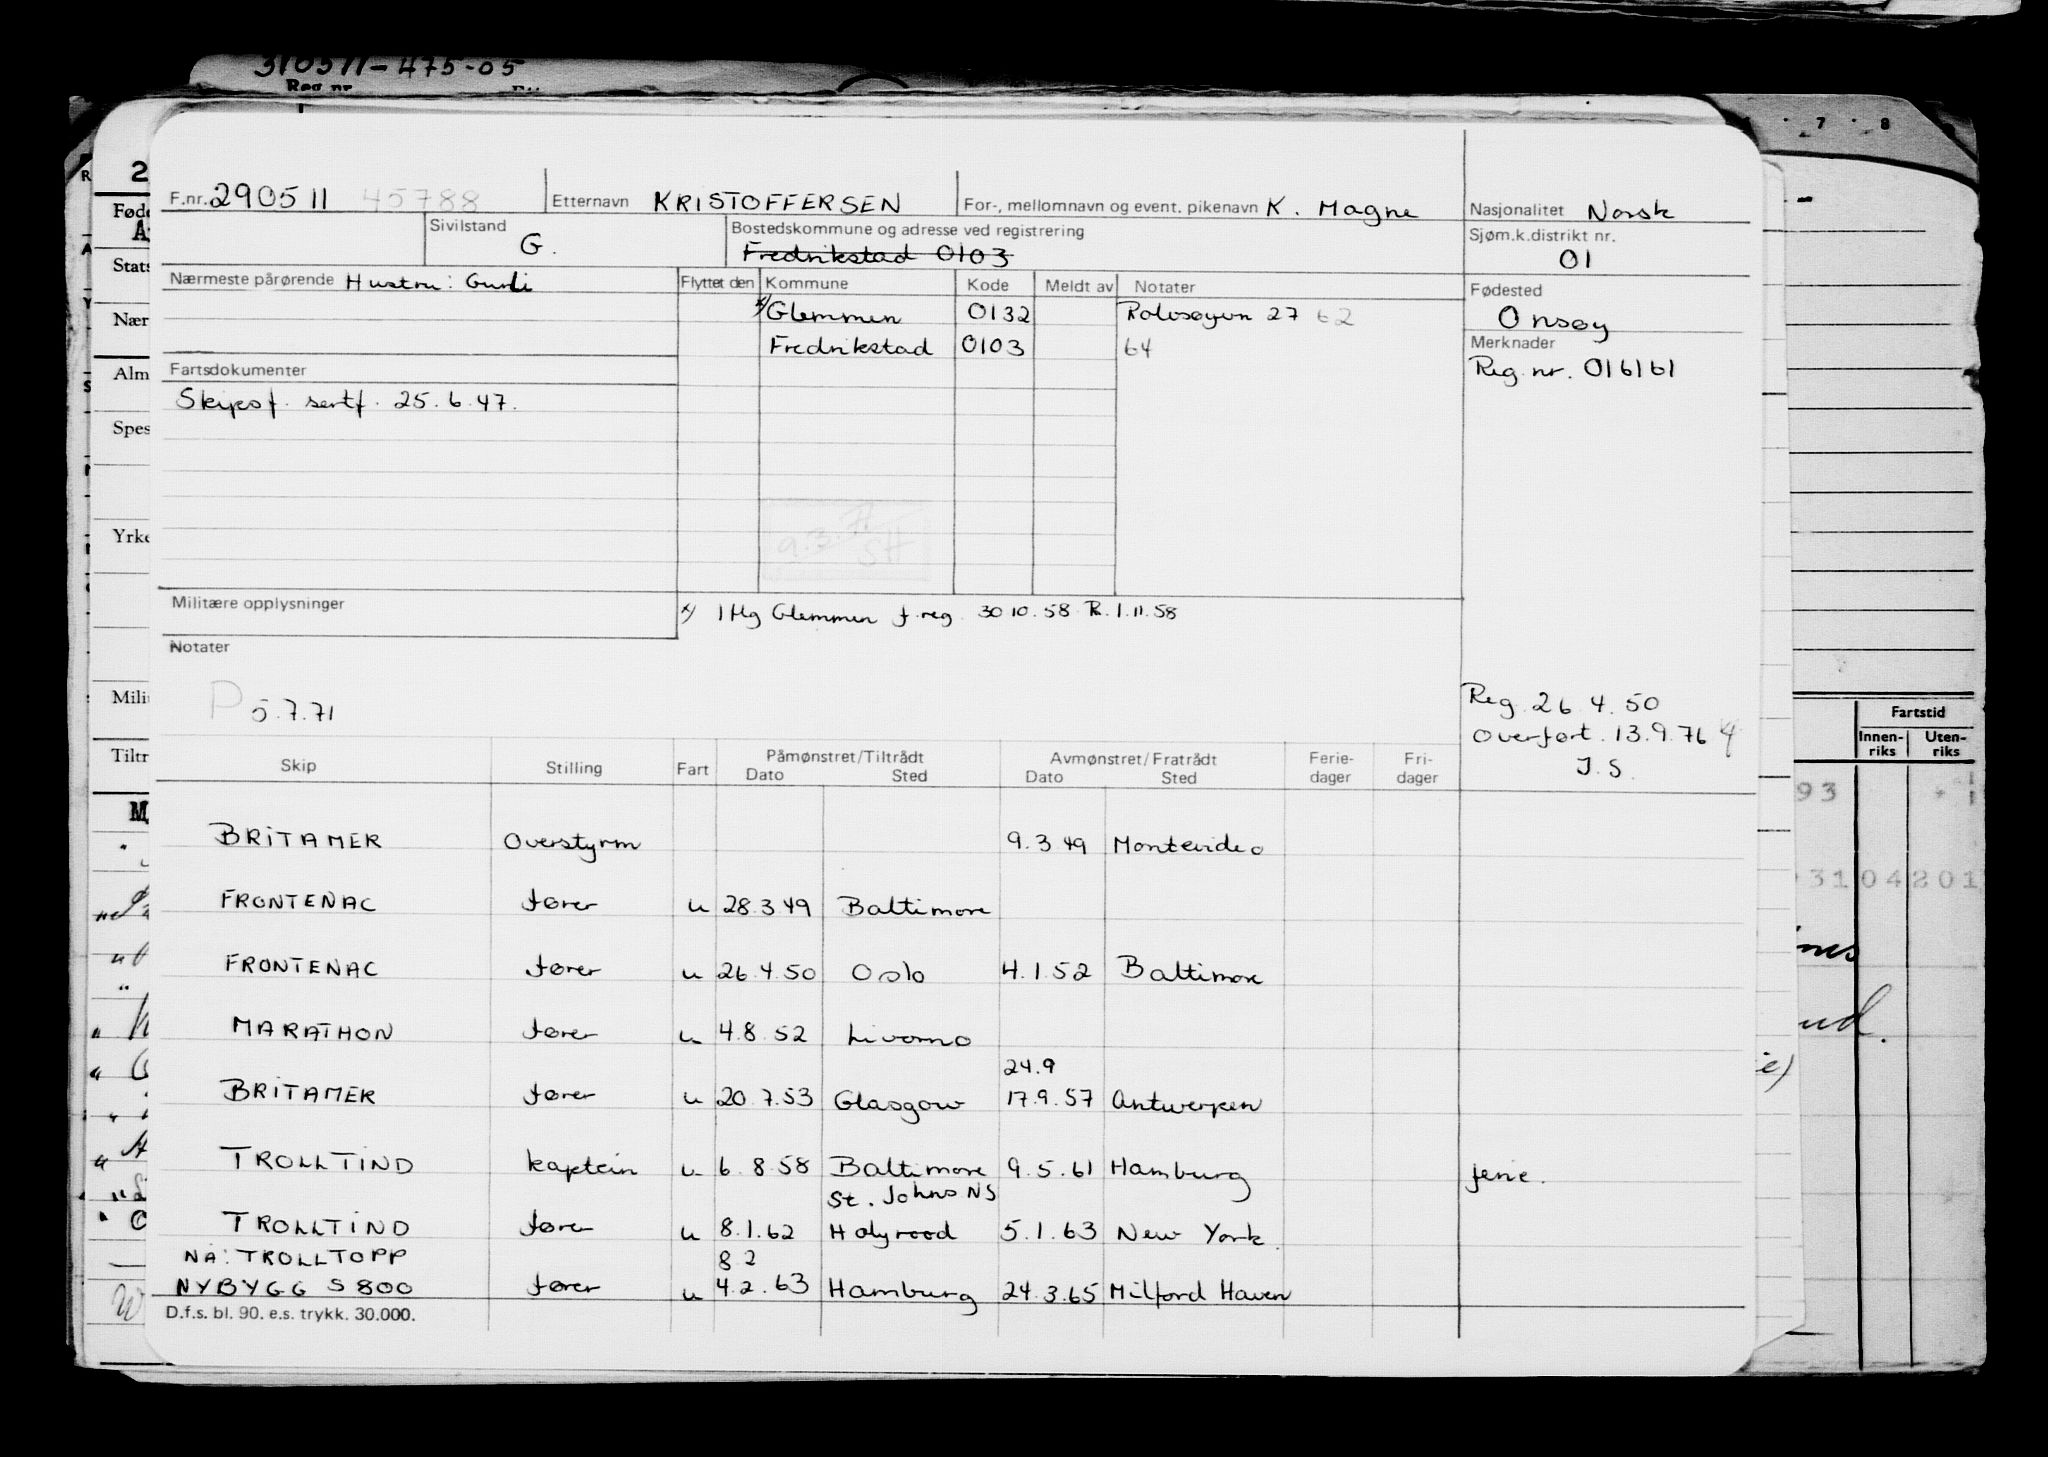 310511-475-05
Reg.nr.
7 . 8
F.nr. 290511 45788 Etternavn KRISTOFFERSEN For-, mellomnavn og event. pikenavn K. Magne Nasjonalitet Norsk
Sivilstand G. Bostedskommune og adresse ved registrering Sjøm.k.distrikt nr.
Fredrikstad 0103 01
Nærmeste pårørende Hustru: Gurli Flyttet den Kommune Kode Meldt av Notater Fødested
x) Glemmen 0132 Rolvsøyvn 27 62 Onsøy
Fredrikstad 0103 64 Merknader
Fartsdokumenter Reg. nr. 016161
Skipsf. sertf. 25.6.47.
9.3.71
SH
Militære opplysninger x) Iflg Glemmen f.reg. 30 10.58 R. 1.11.58
Notater
P 5.7.71
Reg. 26.4.50
Overført. 13.9.76
J.S.
Skip Stilling Fart Påmønstret/Tiltrådt Avmønstret/Fratrådt Ferie- Fri-
Dato Sted Dato Sted dager dager
BRITAMER Overstyrm 9.3 49 Montevideo
FRONTENAC fører u 28.3 49 Baltimore
FRONTENAC fører u 26.4.50 Oslo 4.1.52 Baltimore
MARATHON fører u 4.8.52 Livorno
24.9
BRITAMER fører u 20.7.53 Glasgow 17.9.57 Antwerpen
TROLLTIND kaptein u 6.8.58 Baltimore 9.5.61 Hamburg ferie.
St. Johns NS
TROLLTIND fører u 8.1.62 Holyrood 5.1.63 New York.
NÅ: TROLLTOPP 8 2
NYBYGG S 800 fører u 4.2.63 Hamburg 24.3.65 Milford Haven
D.f.s. bl. 90. e.s. trykk. 30.000.
Fartstid
Innen- Uten-
riks riks
93
31 04 201